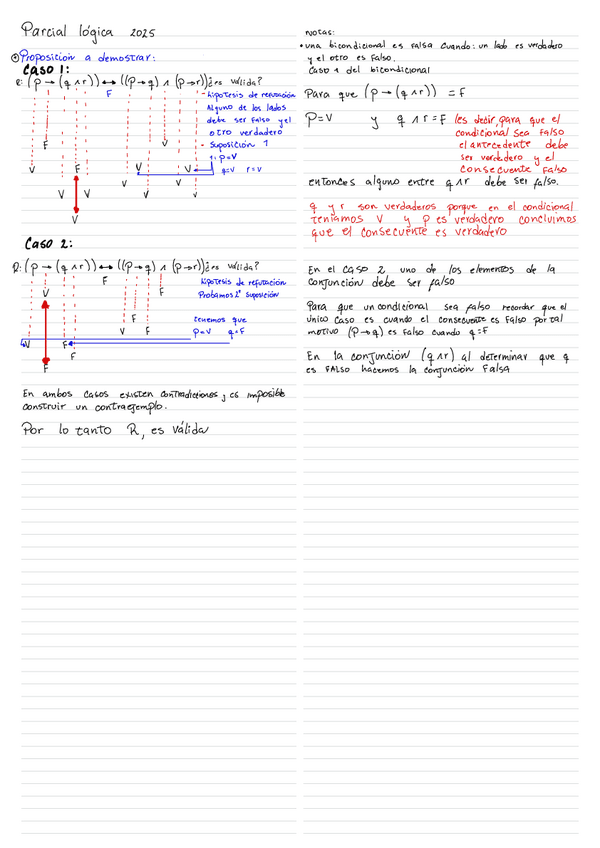 Parcial lógica 2025
Proposición a demostrar:
Caso 1:
R: (p → (q ∧ r)) ↔ ((p → q) ∧ (p → r)) ¿es válida?
F
- hipotesis de refutación
Alguno de los lados
debe ser Falso y el
otro verdadero
- Suposición 1
1: p=V
q=V r=V
F V
V F V V
V V V V
V
Caso 2:
R: (p → (q ∧ r)) ↔ ((p → q) ∧ (p → r)) ¿es válida?
F
hipotesis de refutación
Probamos 2ª suposición
V F
V F
tenemos que
p=V q=F
V F
F
F
En ambos casos existen contradicciones y es imposible
construir un contraejemplo.
Por lo tanto R, es válida
notas:
• una bicondicional es falsa cuando: un lado es verdadero
y el otro es Falso.
Caso 1 del bicondicional
Para que (p → (q ∧ r)) = F
P=V y q ∧ r = F (es decir, para que el
condicional sea Falso
el antecedente debe
ser verdadero y el
consecuente Falso
entonces alguno entre q ∧ r debe ser falso.
q y r son verdaderos porque en el condicional
teníamos V y p es verdadero concluimos
que el consecuente es verdadero
En el caso 2 uno de los elementos de la
conjunción debe ser falso
Para que un condicional sea falso recordar que el
único caso es cuando el consecuente es Falso por tal
motivo (P → q) es Falso cuando q = F
En la conjunción (q ∧ r) al determinar que q
es FALSO hacemos la conjunción Falsa